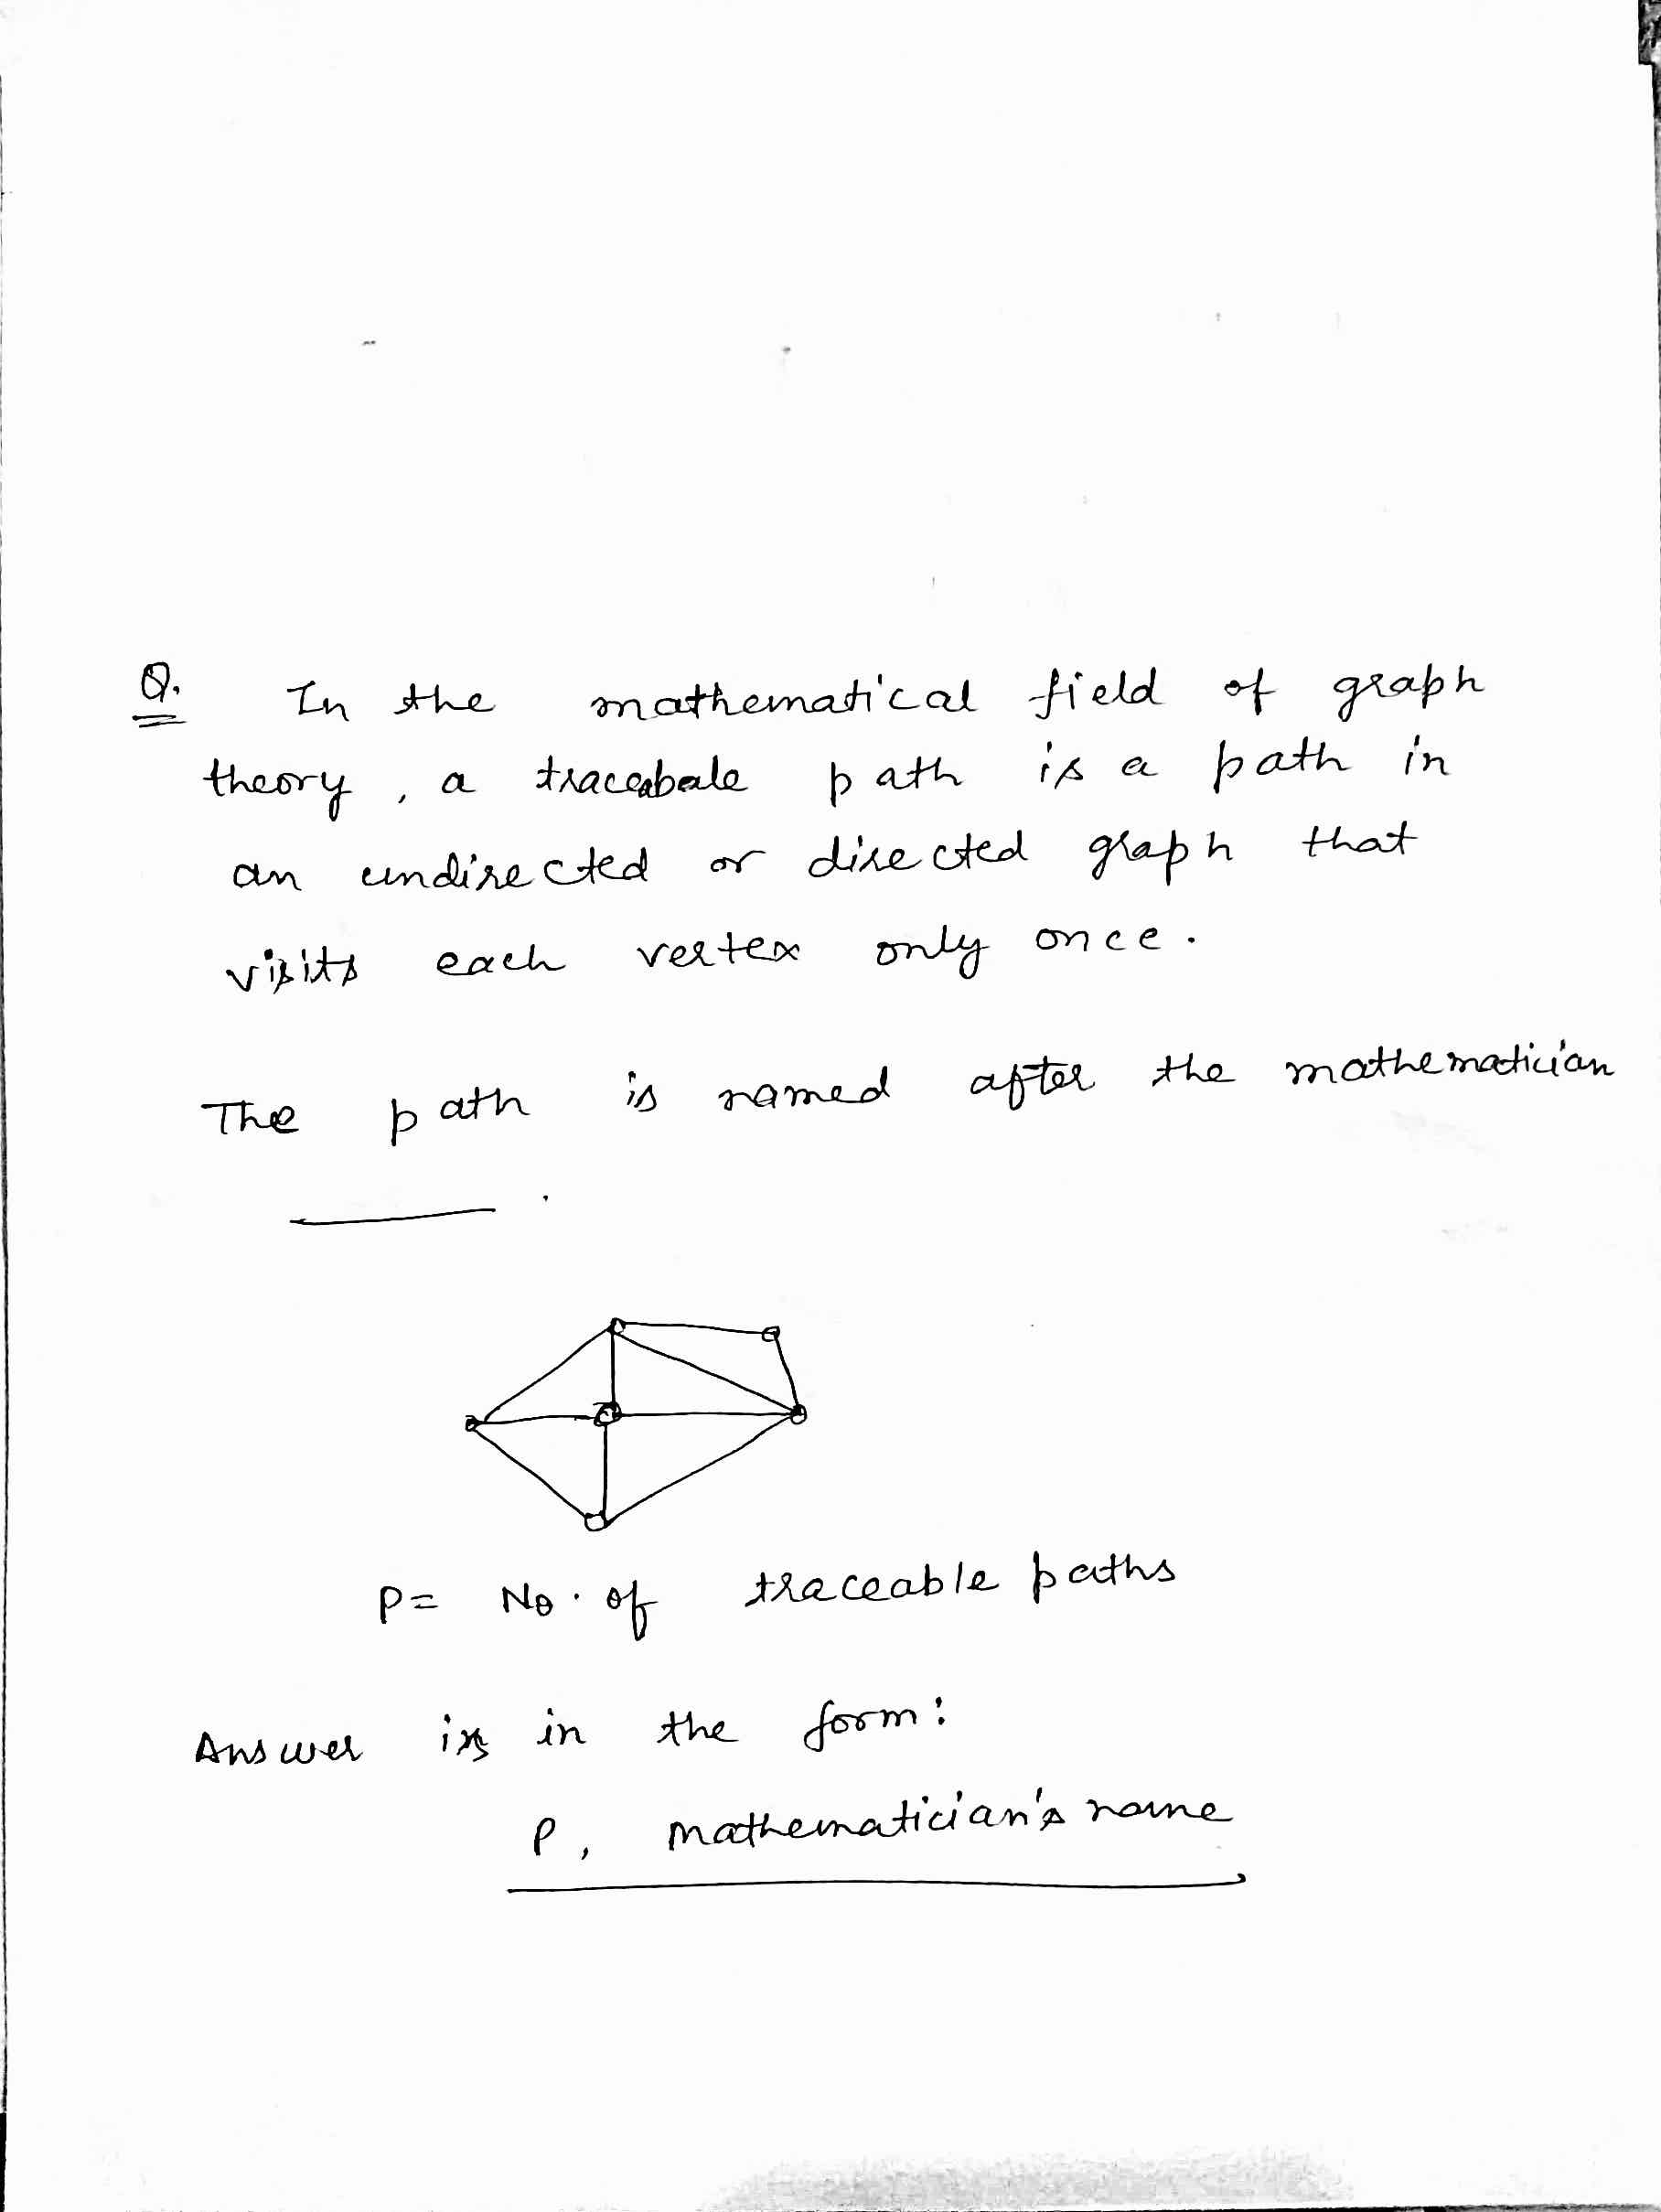 Q. In the mathematical field of graph
theory, a tracebale path is a path in
an undirected or directed graph that
visits each vertex only once.
The path is named after the mathematician
______.
P= No. of traceable paths
Answer is in the form:
P, Mathematician's name